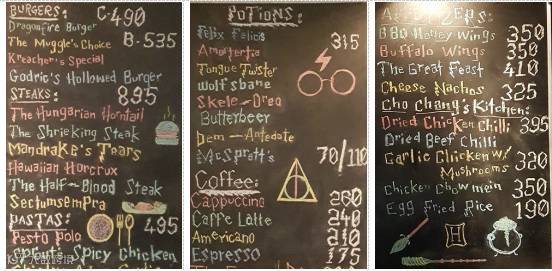 BURGERS: C-490
Dragonfire Burger
The Muggle's Choice B-535
Kreacher's Special
Godric's Hollowed Burger
STEAKS: 895
The Hungarian Horntail
The Shrieking Steak
Mandrake's Tears
Hawaiian Horcrux
The Half-Blood Steak
Sectumsempra
PASTAS: 495
Pesto Polo
Spicy Chicken
POTIONS:
Felix Felicis 315
Amortentia
Tongue Twister
Wolfsbane
Skele-Drea
Butterbeer
Dem-Antedote
McSpratt's 70/110
Coffee:
Cappuccino 260
Caffe Latte 240
Americano 210
Espresso 175
BBQ Honey Wings 350
Buffalo Wings 350
The Great Feast 410
Cheese Nachos 325
Cho Chang's Kitchen:
Dried Chicken Chilli 395
Dried Beef Chilli
Garlic Chicken w/ 320
Mushrooms
Chicken Chowmein 350
Egg Fried Rice 190